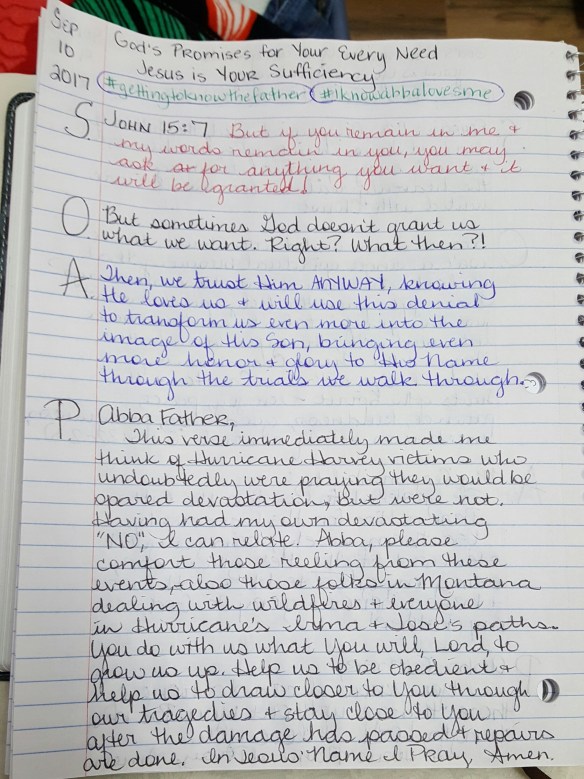 SEP
10
2017
God's Promises for Your Every Need
Jesus is YOUR Sufficiency
#gettingtoknowthefather #Iknowabbalovesme
S JOHN 15:7 But if you remain in me +
my words remain in you, you may
ask for anything you want + it
will be granted!
O But sometimes God doesn't grant us
what we want. Right? What then?!
A. Then, we trust Him ANYWAY, knowing
He loves us + will use this denial
to transform us even more into the
image of His Son, bringing even
more honor + glory to His Name
through the trials we walk through.
P Abba Father,
This verse immediately made me
think of Hurricane Harvey victims who
undoubtedly were praying they would be
spared devastation, but were not.
Having had my own devastating
"NO", I can relate. Abba, please
comfort those reeling from these
events, also those folks in Montana
dealing with wildfires + everyone
in Hurricane's Irma + Jose's paths.
You do with us what You will, Lord, to
grow us up. Help us to be obedient +
help us to draw closer to You through
our tragedies + stay close to You
after the damage has passed + repairs
are done. In Jesus' Name I Pray, Amen.